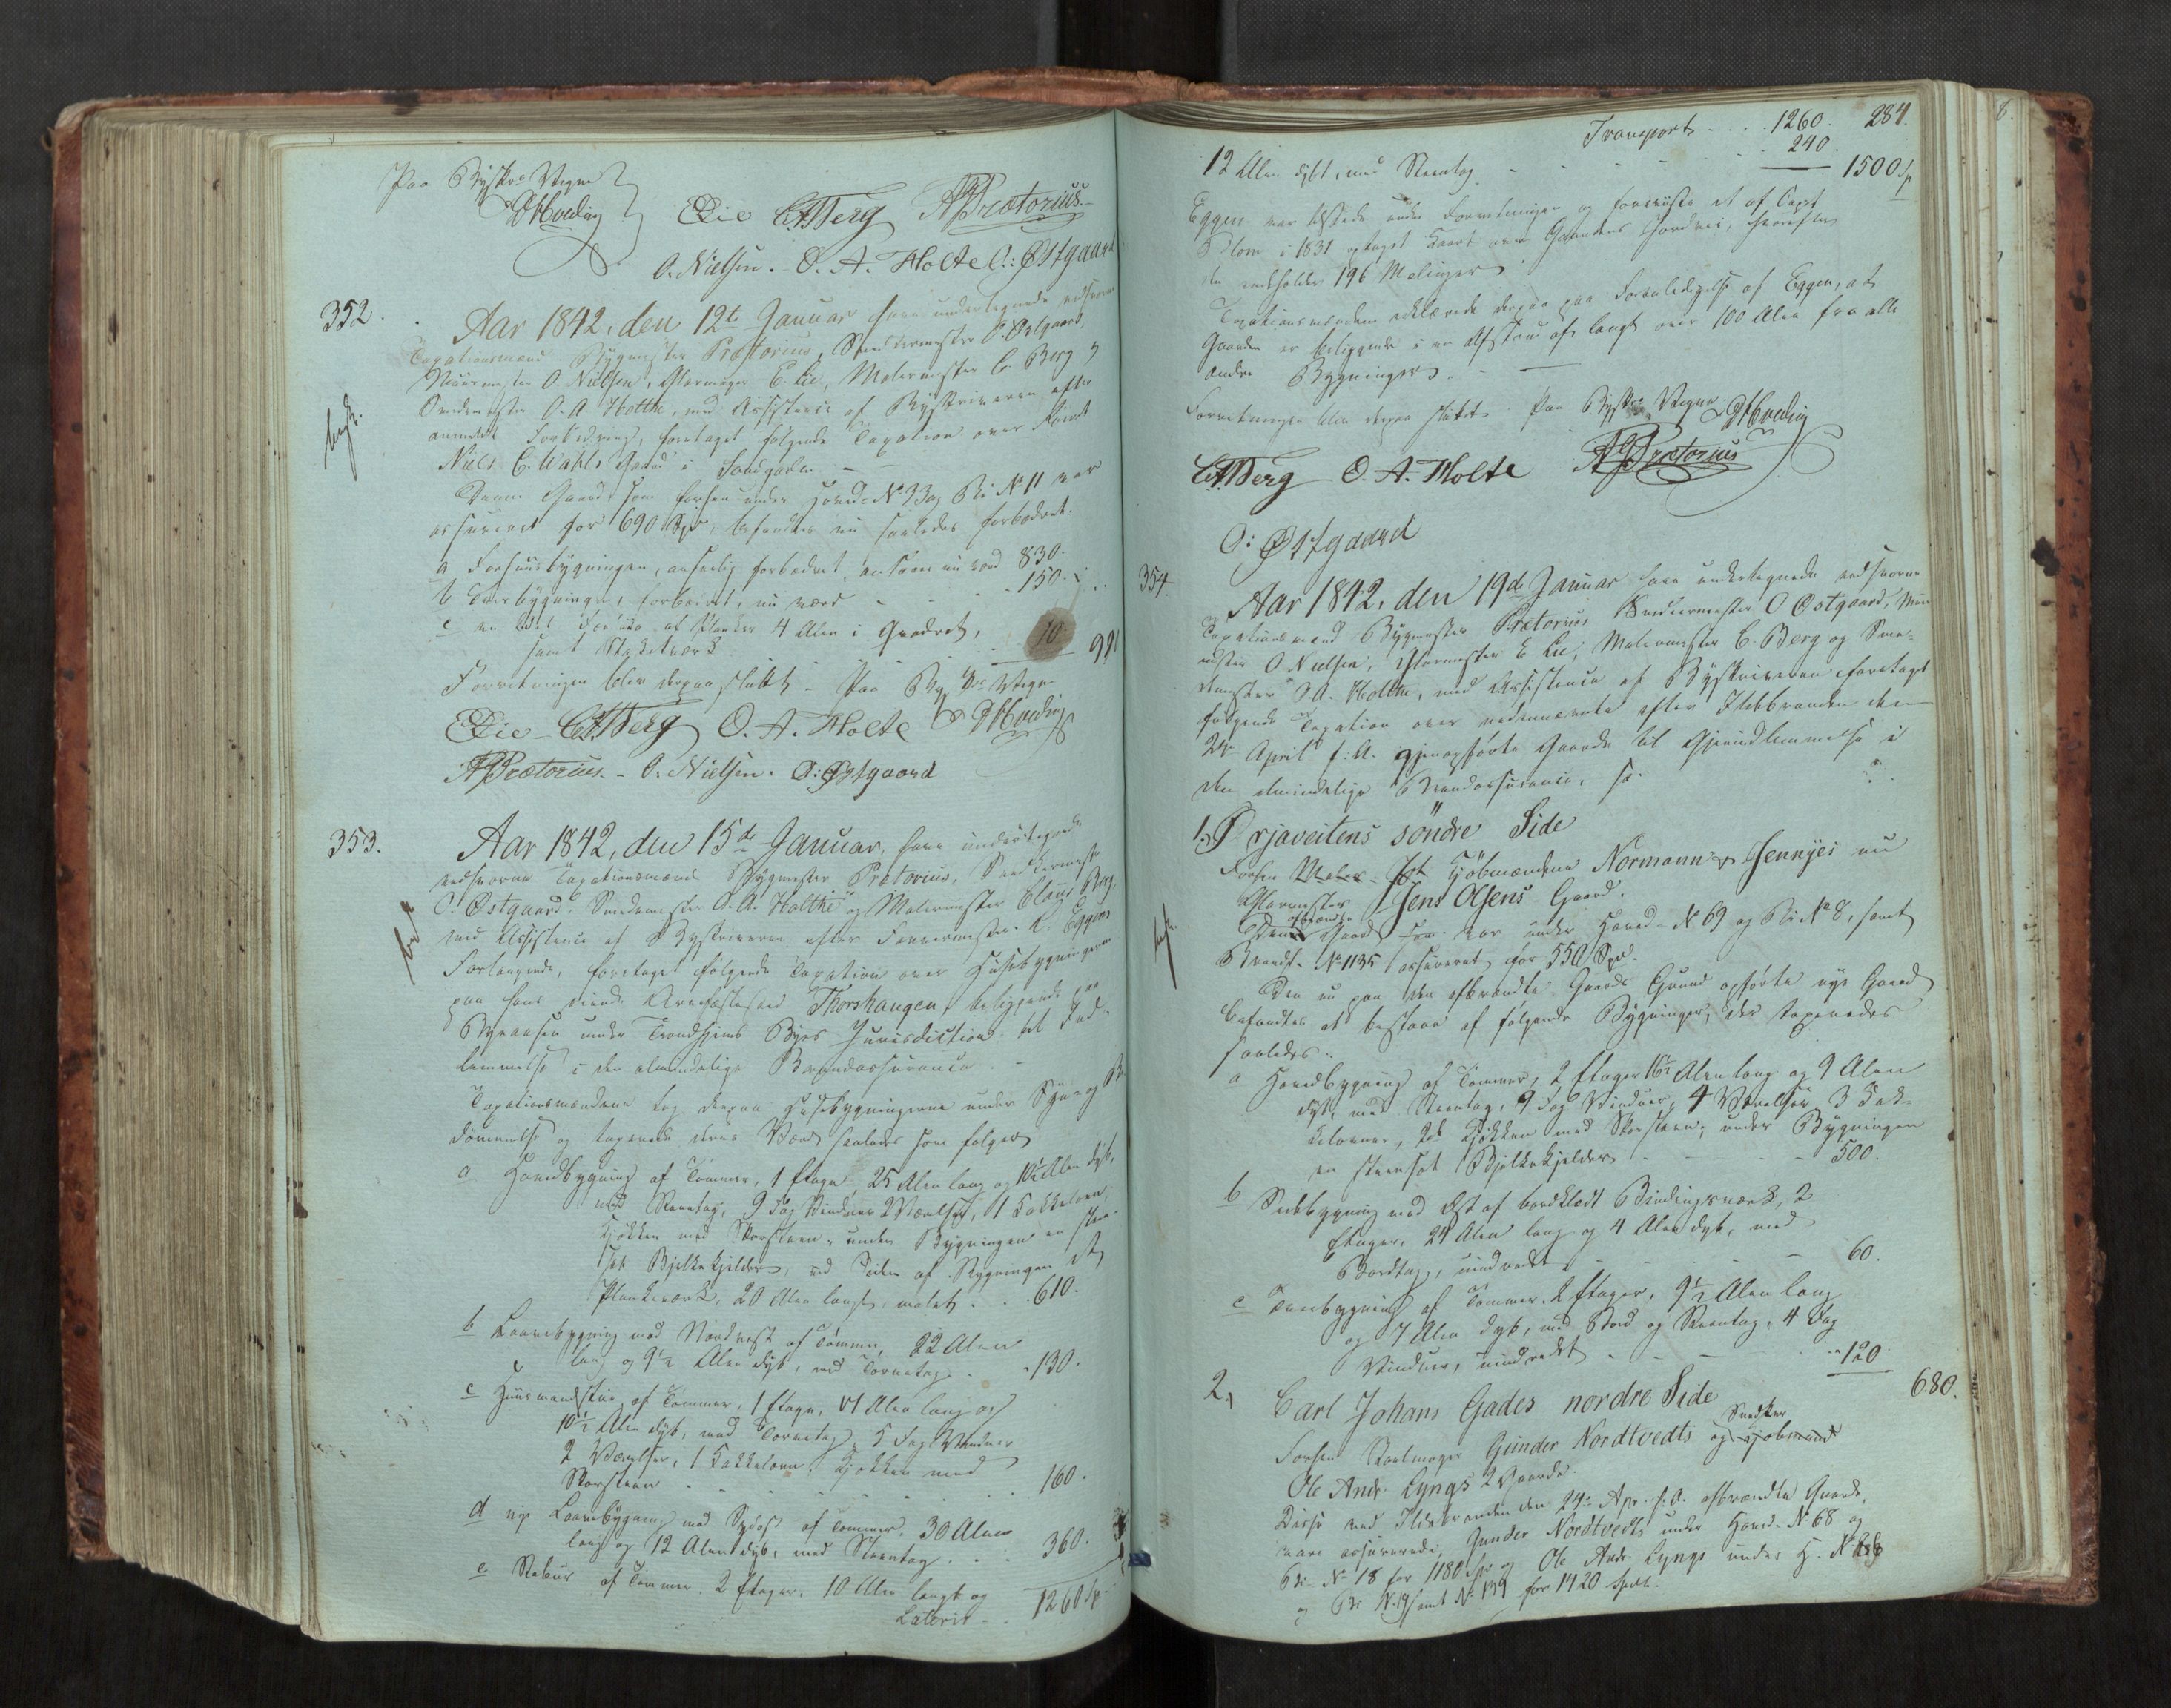 Paa Byskr. Vegne
Hveding ELie CABerg APrætorius.
O. Nielsen. O. A. Holte O: Østgaard
352. Aar 1842, den 12te Januar have undertegnede edsvorne
Taxationsmænd Bygmester Prætorius, Snedkermester O. Østgaard,
Muurmester O. Nielsen, Glarmester E. Lie, Malermester C. Berg og
Smedemester O. A. Holthe, med Assistence af Byskriveren, efter
anmeldt Forbedring, foretaget følgende Taxation over
Niels C. Wahls Gaard i Sandgaden.
Denne Gaard, som forhen under Hoved-No 33 og Bi No 11 var
assureret for 690 Spd, befandtes nu saaledes forbedret.
a Forhuusbygningen, anseelig forbedret, ansees nu værd 830.
b Tverbygningen, forbedret, nu værd 150.
c en af Planker 4 Alen i Quadrat,
samt Stakitværk 10 99
Forretningen blev derpaa sluttet. Paa Byskr. Vegne
ELie CABerg O. A. Holte Hveding
APrætorius. - O. Nielsen. O: Østgaard
353. Aar 1842, den 15de Januar, have undertegnede
edsvorne Taxationsmænd Bygmester Prætorius, Snedkermester
O. Østgaard, Smedemester O. A. Holthe og Malermester Claus Berg,
med Assistence af Byskriveren efter Farvermester R. Eggens
Forlangende, foretaget følgende Taxation over Huusbygningerne
paa hans eiende Thorshaugen, beliggende paa
Byaasen under Trondhjems Byes Jurisdiction til Ind-
lemmelse i den almindelige Brandassurance.
Taxationsmændene tog derpaa Huusbygningerne under Syn og Be-
dømmelse og taxerede deres Værd saaledes som følger
a Hovedbygning af Tømmer, 1 Etage, 25 Alen lang og 10½ Alen dyb,
med Steentag, 9 Fag Vinduer 2 Værelser, 1 Kakkelovn,
Kjøkken med Skorsteen, under Bygningen en steen-
sat Bjelkekjelder, ved Siden af Bygningen et
Plankeværk, 20 Alen langt, malet 610.
b Laanebygning mod Nordvest af Tømmer, 22 Alen
lang og 9½ Alen dyb, med Torvetag 130.
c Huusmandsstue af Tømmer, 1 Etage, Alen lang og
10½ Alen dyb, med Torvetag, 5 Fag Vinduer
2 Værelser, 1 Kakkelovn, Kjøkken med
Skorsteen 160.
d nye Laanebygning mod Sydost af Tømmer, 30 Alen
lang og 12 Alen dyb, med Steentag 360.
e Stabur af Tømmer 2 Etager, 10 Alen langt og
Lateris 1260 Sp
Transport 1260. 284.
12 Alen dybt, med Steentag 240.
1500 Sp
Eggen var tilstede under Forretningen og foreviste et af Capt
Blom i 1831 optaget Kaart over Gaardens Jordvei, hvorefter
den indeholder 196 Mælinger.
Taxationsmændene erklærede derpaa paa Foranledigelse af Eggen, at
Gaarden er beliggende i en Afstand af langt over 100 Alen fra alle
andre Bygninger.
Forretningen blev derpaa sluttet. Paa Byskr. Vegne Hveding
CABerg O. A. Holte APrætorius
O: Østgaard
354. Aar 1842, den 19de Januar have undertegnede edsvorne
Taxationsmænd Bygmester Prætorius, Snedkermester O Østgaard, Muur-
mester O Nielsen, Glarmester E Lie, Malermester C. Berg og Sme-
demester O. A. Holthe, med Assistence af Byskriveren foretaget
følgende Taxation over nedennævnte efter Ildebranden den
24de April f. A. gjenopførte Gaarde til Gjenindlemmelse i
den almindelige Brandassurance, so
1.) Prjaveitens söndre Side
Forhen Kjöbmændene Normann & Jennyes nu
Glarmester Jens Olsens Gaard.
Denne afbrændte Gaard var under Hoved-No 69 og Bi No 8, samt
Brandt. No 1135 assureret for 550 Spd.
Den nu paa den afbrændte Gaards Grund opførte nye Gaard
befandtes at bestaae af følgende Bygninger, der taxeredes
saaledes:
a Hovedbygning af Tømmer, 2 Etager 16½ Alen lang og 9 Alen
dyb, med Steentag, 9 Fag Vinduer, 4 Værelser 3 Kak-
kelovne, Kjøkken med Skorsteen, under Bygningen
en steensat Bjelkekjelder 500.
b Sidebygning mod Øst af bordklædt Bindingsværk, 2
Etager, 24 Alen lang og 4 Alen dyb, med
Bordtag, indredet 60.
c Tverbygning af Tømmer 2 Etager, 9½ Alen lang
og 7 Alen dyb, med Bord og Steentag, 4 Fag
Vinduer, indredet 120
680.
2.) Carl Johans Gades nordre Side
Forhen Gunder Nordtvedts og Snedker Kjøbmand
Ole Andr. Lyngs 2 Gaarde.
Disse ved Ildebranden den 24de Apr. f. A. afbrændte Gaarde,
vare assurerede, Gunder Nordtvedts under Hoved-No 68 og
Bi-No 18 for 1180 Spd og Ole Andr. Lyngs under H. No
og Bi No 19 samt No 139 for 1420 Spd.